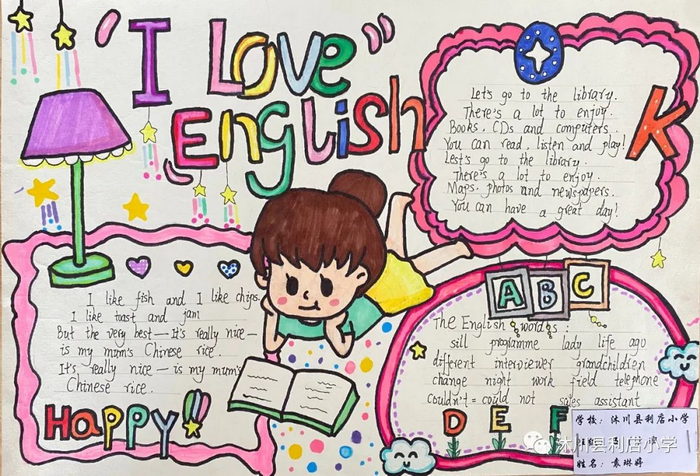 "I Love"
English
Let's go to the library.
There's a lot to enjoy.
Books, CDs and computers.
You can read, listen and play!
Lest's go to the library.
There's a lot to enjoy.
Maps. photos and newspapers.
You can have a great day!
K
I like fish and I like chips.
I like toast and jam
But the very best—It's really nice—
is my mum's Chinese rice.
It's really nice—is my mum's
Chinese rice.
Happy!!
A B C
The English words:
sill programme lady life ago
different interviewer grandchildren
change night work field telephone
couldn't=could not sales assistant
D E F
学校：沐川县利店小学
姓名：袁琳婷
沐川县利店小学